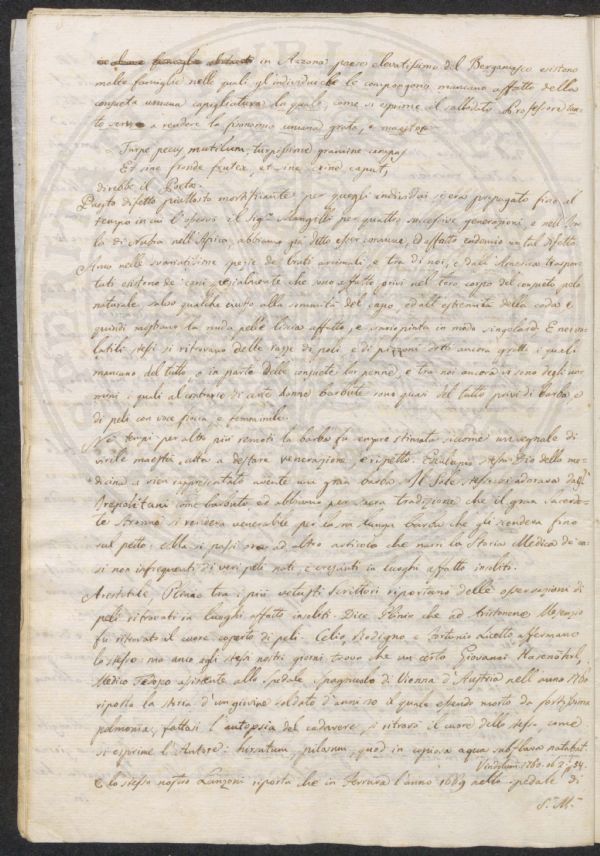 in Azzona paese elevatissimo del Bergamasco esistono
molte famiglie nelle quali gl'individui che le compongono, mancano affatto della
consueta umana capigliatura la quale, come si esprime il sallodato Professore tan-
to serve a rendere la fisonomia umana grata, e maestosa
Turpe pecus mutilum, turpissimum gramine campus
Et sine fronde frutex, et sine crine caput,
direbbe il Poeta.
Questo difetto piuttosto mortificante per quegli individui s'era propagato fino al
tempo in cui l'osservò il Sigr. Mangilli per quattro successive generazioni, e nell'Iso-
la di Nubia nell'Africa, abbiamo già detto esser comune, ed affatto endemio un tal difetto.
Anzi nelle svariatissime specie de' bruti animali, e tra di noi, e dall'America traspor-
tati esistono de' cani specialmente che sono affatto privi nel loro corpo del consueto pelo
naturale, salvo qualche ciuffo alla sommità del capo ed all'estremità della coda e
quindi mostrano la nuda pelle liscia affatto, e variopinta in modo singolare. E nei vo-
latili stessi si ritrovano delle razze di polli e di pizzoni detti ancora grotti i quali
mancano del tutto, o in parte delle consuete lor penne, e tra noi ancora vi sono degli uo-
mini i quali al contrario di certe donne barbute sono quasi del tutto privi di barba e
di peli con voce fioca, e femminile.
Ne' tempi per altro più remoti la barba fu sempre stimata siccome un segnale di
virile maestà, atta a destare venerazione e rispetto. Esculapio stesso Dio della me-
dicina ci vien rappresentato avente una gran barba. Il Sole stesso si adorava dagl'
Irepolitani come barbuto ed abbiamo per sacra tradizione che il gran Sacerdo-
te Aronne si rendeva venerabile per la sua lunga barba che gli scendeva fino
sul petto. Ma si passi ora ad altro articolo che narri la Storia Medica de' ca-
si non infrequenti di veri peli nati, e cresciuti in luoghi affatto insoliti.
Aristotele, Plinio tra i più vetusti Scrittori riportano delle osservazioni di
peli ritrovati in luoghi affatto insoliti. Dice Plinio che ad Aristomene Messenio
fu ritrovato il cuore coperto di peli. Celio, Rodigno e Fortunio Liceto affermano
lo stesso ma anco agli stessi nostri giorni trovo che un certo Giovanni Hasenöhrl,
Medico Tedesco assistente allo spedale Spagnuolo di Vienna d'Austria nell'anno 1760
riporta la storia d'un giovine soldato d'anni 20 il quale essendo morto da fortissima
pulmonia, fattasi l'autopsia del cadavere, si ritrovò il cuore dello stesso, come
si esprime l'Autore: hirsutum, pilosum, quod in copiosa aqua subflava natabat.
Vindobon. 1760. 84.
E lo stesso nostro Lanzoni riporta che in Ferrara l'anno 1689 nello spedale di
S. M.